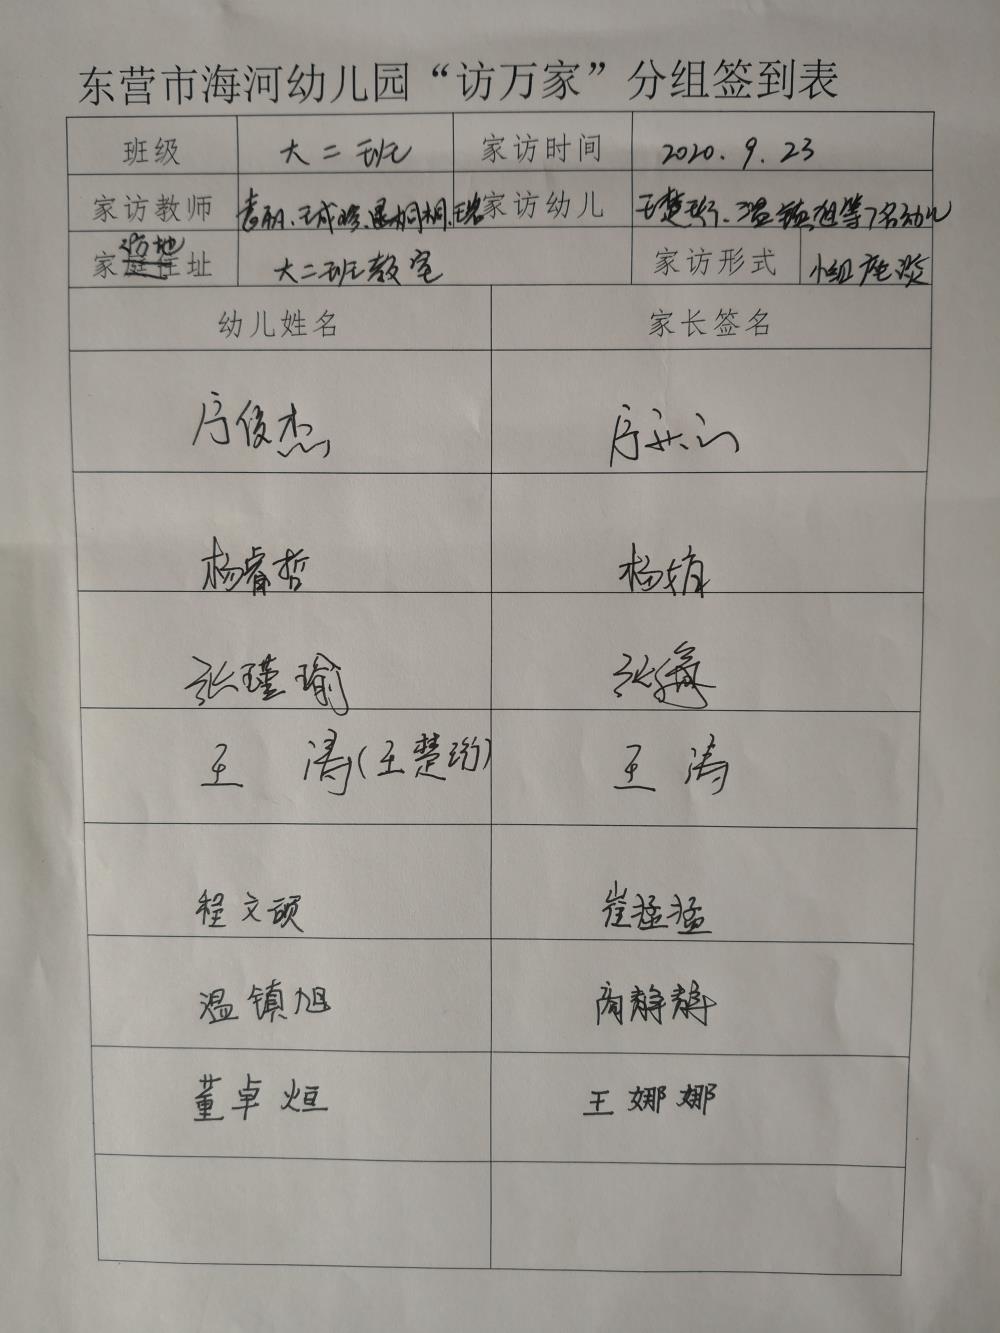 东营市海河幼儿园“访万家”分组签到表
班级 大二班 家访时间 2020.9.23
家访教师 家访幼儿 王楚珩、温镇旭等7名幼儿
家访地址 大二班教室 家访形式 小组座谈
幼儿姓名 家长签名
俊杰
杨睿哲 杨
张瑾瑜 张
王涛(王楚珩) 王涛
程文硕 崔猛猛
温镇旭 商静静
董卓烜 王娜娜